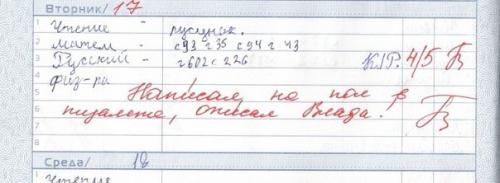 Вторник/ 17
1 Чтение - рисунок.
2 Матем - с 93 г 35 с 94 г 43
3 Русский - г 602 с 226 К/Р. 4/5
4 физ-ра
5 Написал на пол в
6 туалете, описал Влада.
7
8
Среда/ 18
1 Чтение